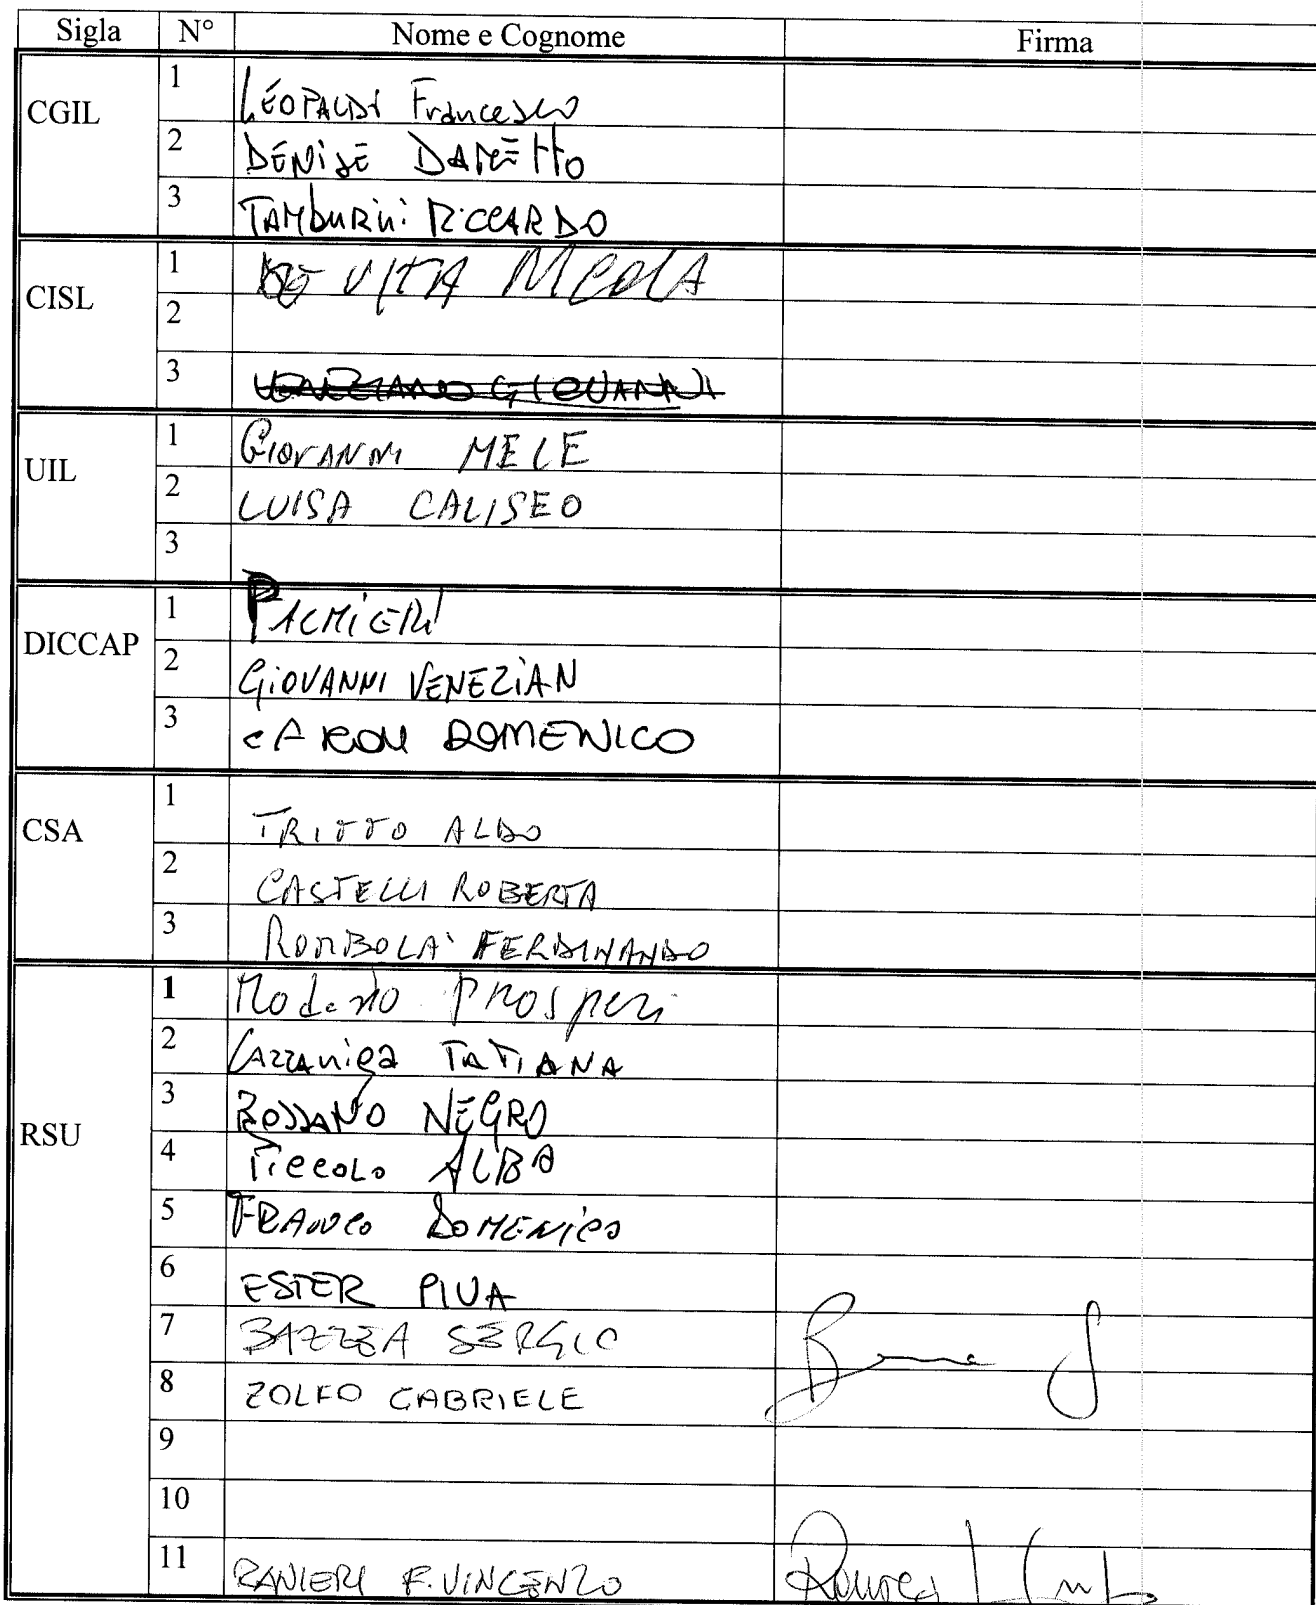 Sigla N° Nome e Cognome Firma
CGIL 1 LEOPALDI Francesco
2 DENISE DAMETTO
3 TAMBURINI RICCARDO
CISL 1 DE VITA NICOLA
2
3 VENEZIANO GIOVANNI
UIL 1 GIOVANNI MELE
2 LUISA CALISEO
3
DICCAP 1 PALMIERI
2 GIOVANNI VENEZIAN
3 CAROLI DOMENICO
CSA 1 TRITTO ALDO
2 CASTELLI ROBERTA
3 ROMBOLA' FERDINANDO
RSU 1 Modesto Prosperi
2 CAZZANIGA TATIANA
3 ROSSANO NEGRO
4 PICCOLO ALBA
5 FRANCO DOMENICO
6 ESTER PIVA
7 BAZZEA SERGIO
8 ZOLFO GABRIELE
9
10
11 RANIERI F. VINCENZO